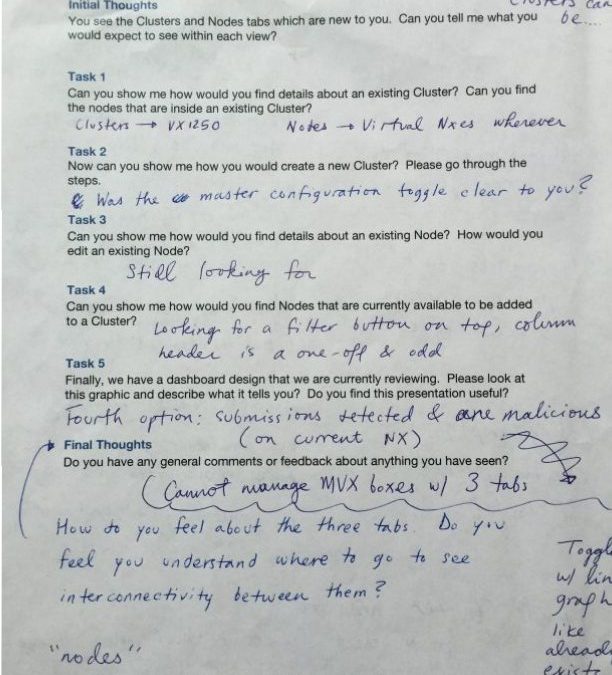 Initial Thoughts
Clusters can
You see the Clusters and Nodes tabs which are new to you. Can you tell me what you
be....
would expect to see within each view?
Task 1
Can you show me how would you find details about an existing Cluster? Can you find
the nodes that are inside an existing Cluster?
Clusters → VX1250 Notes → Virtual Nxes wherever
Task 2
Now can you show me how you would create a new Cluster? Please go through the
steps.
Was the master configuration toggle clear to you?
Task 3
Can you show me how would you find details about an existing Node? How would you
edit an existing Node?
Still looking for
Task 4
Can you show me how would you find Nodes that are currently available to be added
to a Cluster?
Looking for a filter button on top, column
header is a one-off & odd
Task 5
Finally, we have a dashboard design that we are currently reviewing. Please look at
this graphic and describe what it tells you? Do you find this presentation useful?
Fourth option: submissions detected & are malicious
(on current NX)
Final Thoughts
Do you have any general comments or feedback about anything you have seen?
(Cannot manage MVX boxes w/ 3 tabs
How do you feel about the three tabs. Do you
feel you understand where to go to see
interconnectivity between them?
Toggle
w/ lin
graph
like
alread
exist
"nodes"